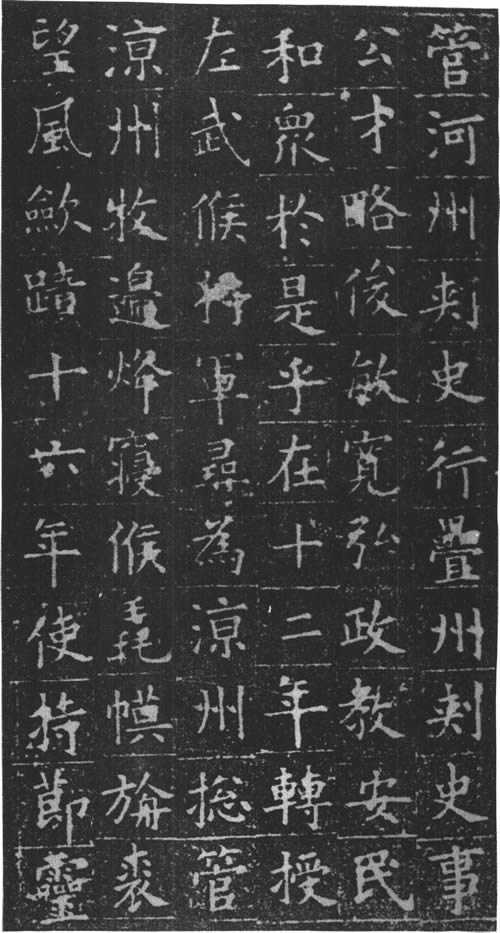 管河州刾史行疊州刾史事
公才略俊敏寬弘政教安民
和衆於是乎在十二年轉授
左武候將軍尋為涼州揔管
涼州牧邊烽寢候毳幙旃裘
望風歛蹟十六年使持節靈